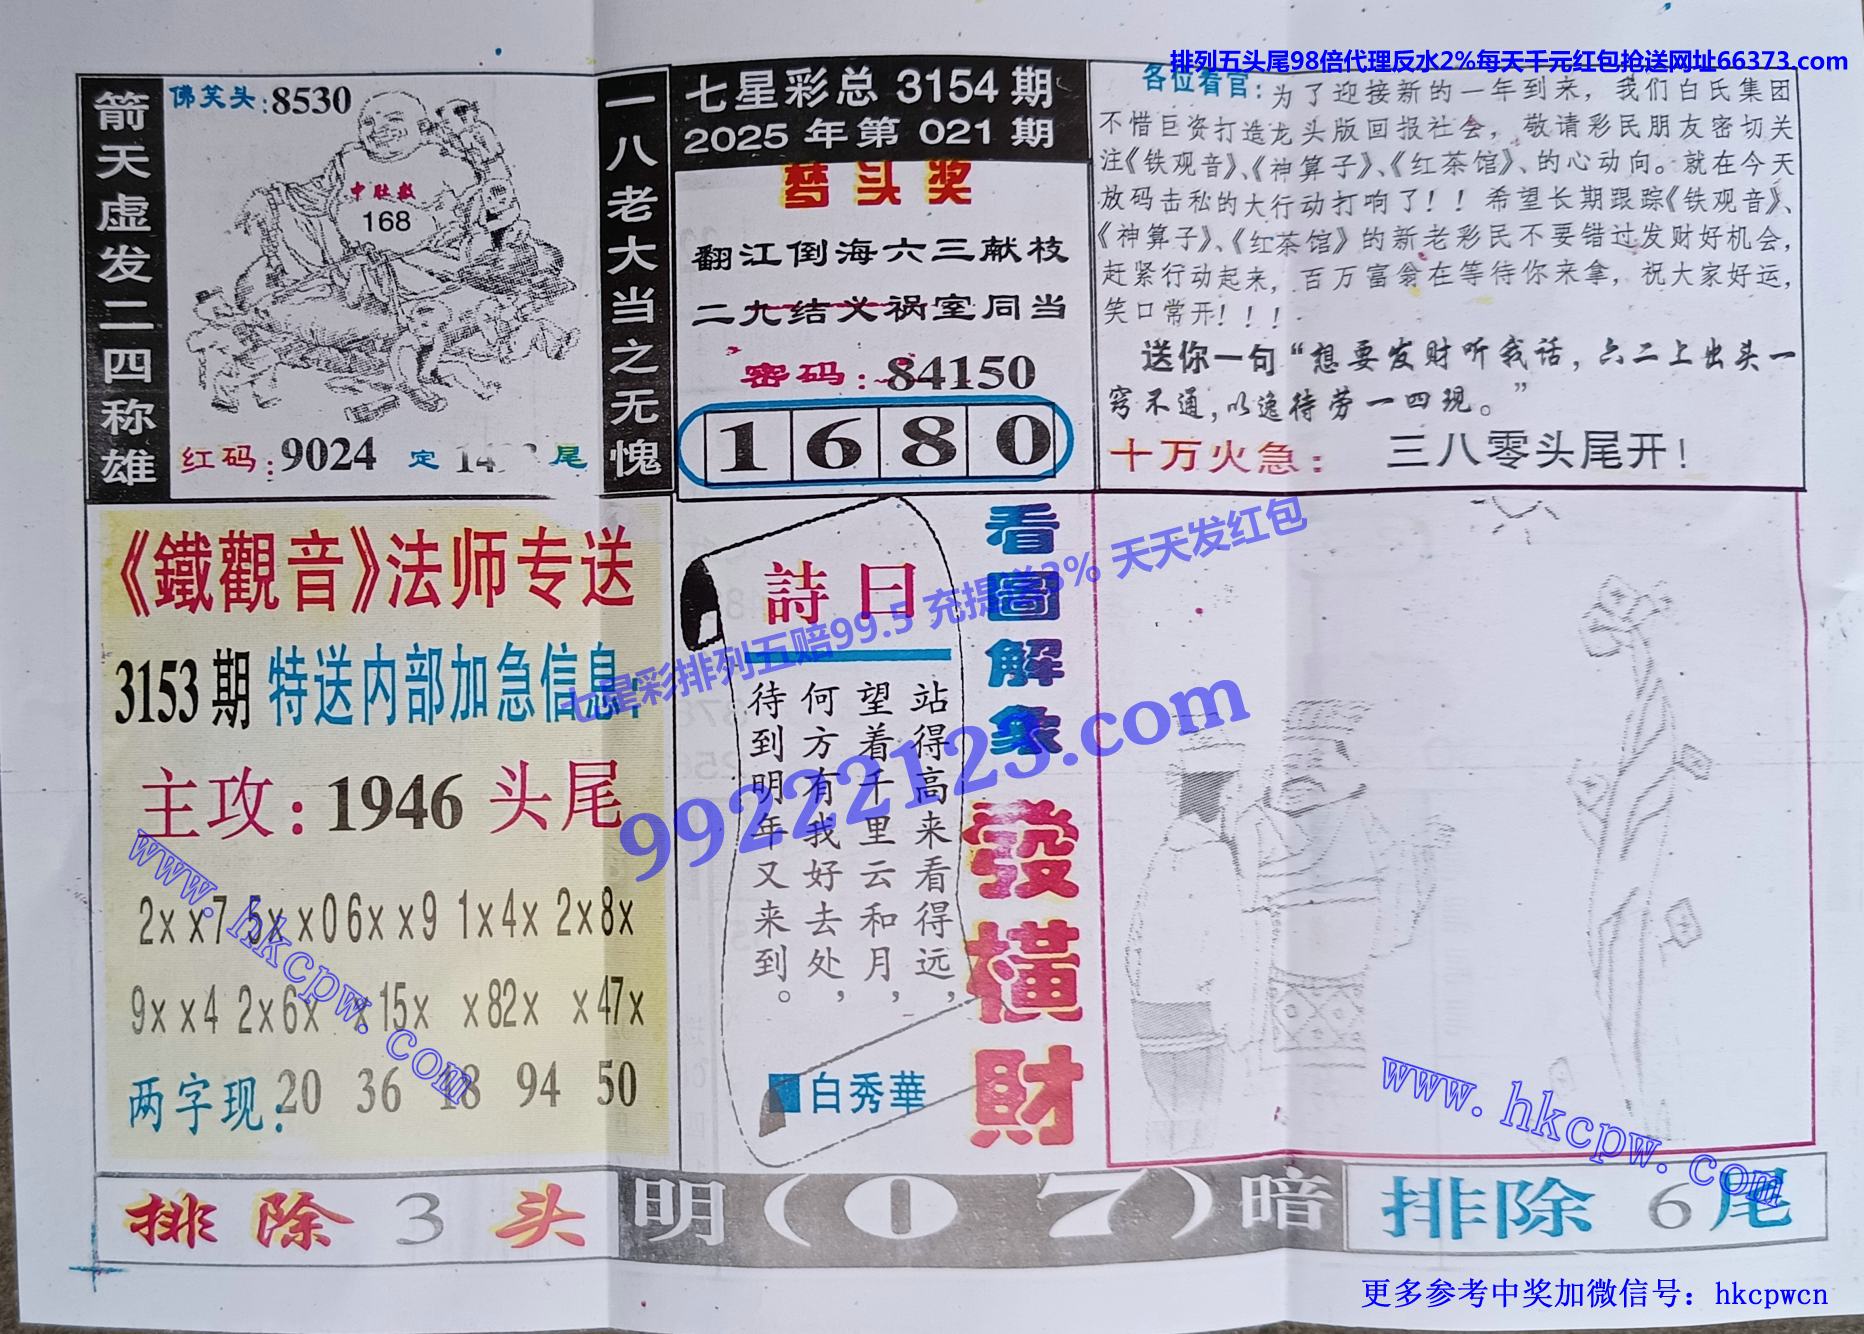 排列五头尾98倍代理反水2%每天千元红包抢送网址66373.com
箭天虚发二四称雄
佛笑头:8530
中肚数
168
红码:9024 定 尾
一八老大当之无愧
七星彩总 3154 期
2025 年第 021 期
梦头奖
翻江倒海六三献枝
二九结义祸室同当
密码:84150
1 6 8 0
各位看官:为了迎接新的一年到来，我们白氏集团
不惜巨资打造龙头版回报社会，敬请彩民朋友密切关
注《铁观音》、《神算子》、《红茶馆》、的心动向。就在今天
放码击私的大行动打响了！！希望长期跟踪《铁观音》、
《神算子》、《红茶馆》的新老彩民不要错过发财好机会，
赶紧行动起来，百万富翁在等待你来拿，祝大家好运，
笑口常开！！！
送你一句“想要发财听我话，六二上出头一
窍不通，以逸待劳一四现。”
十万火急：三八零头尾开！
《鐵觀音》法师专送
3153期 特送内部加急信息:
主攻:1946 头尾
2xx7 5xx0 6xx9 1x4x 2x8x
9xx4 2x6x x15x x82x x47x
两字现:20 36 18 94 50
詩曰
站得高来看得远，
望着千里云和月，
何方有我好去处，
待到明年又来到。
白秀華
看圖解象
發橫財
七星彩排列五赔99.5 充提送3% 天天发红包
99222123.com
www.hkcpw.com
www.hkcpw.com
排除3头
明(07)暗
排除6尾
更多参考中奖加微信号：hkcpwcn